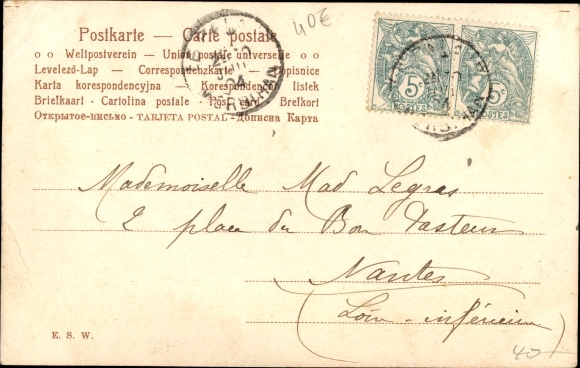 Postkarte — Carte postale
40€
o o Weltpostverein — Union postale universelle o o
Levelező-Lap — Correspondenzkarte — Dopisnice
Karta korespondencyjna — Korespondenčni listek
Briefkaart - Cartolina postale - Post card - Brefkort
Открытое-письмо - TARJETA POSTAL - Дописна Карта
24
04
MORBIHAN
5c 5c
POSTES POSTES
Mademoiselle Mad Legras
2 place du Bon Pasteur
Nantes
(Loire-inférieure)
E. S. W.
40